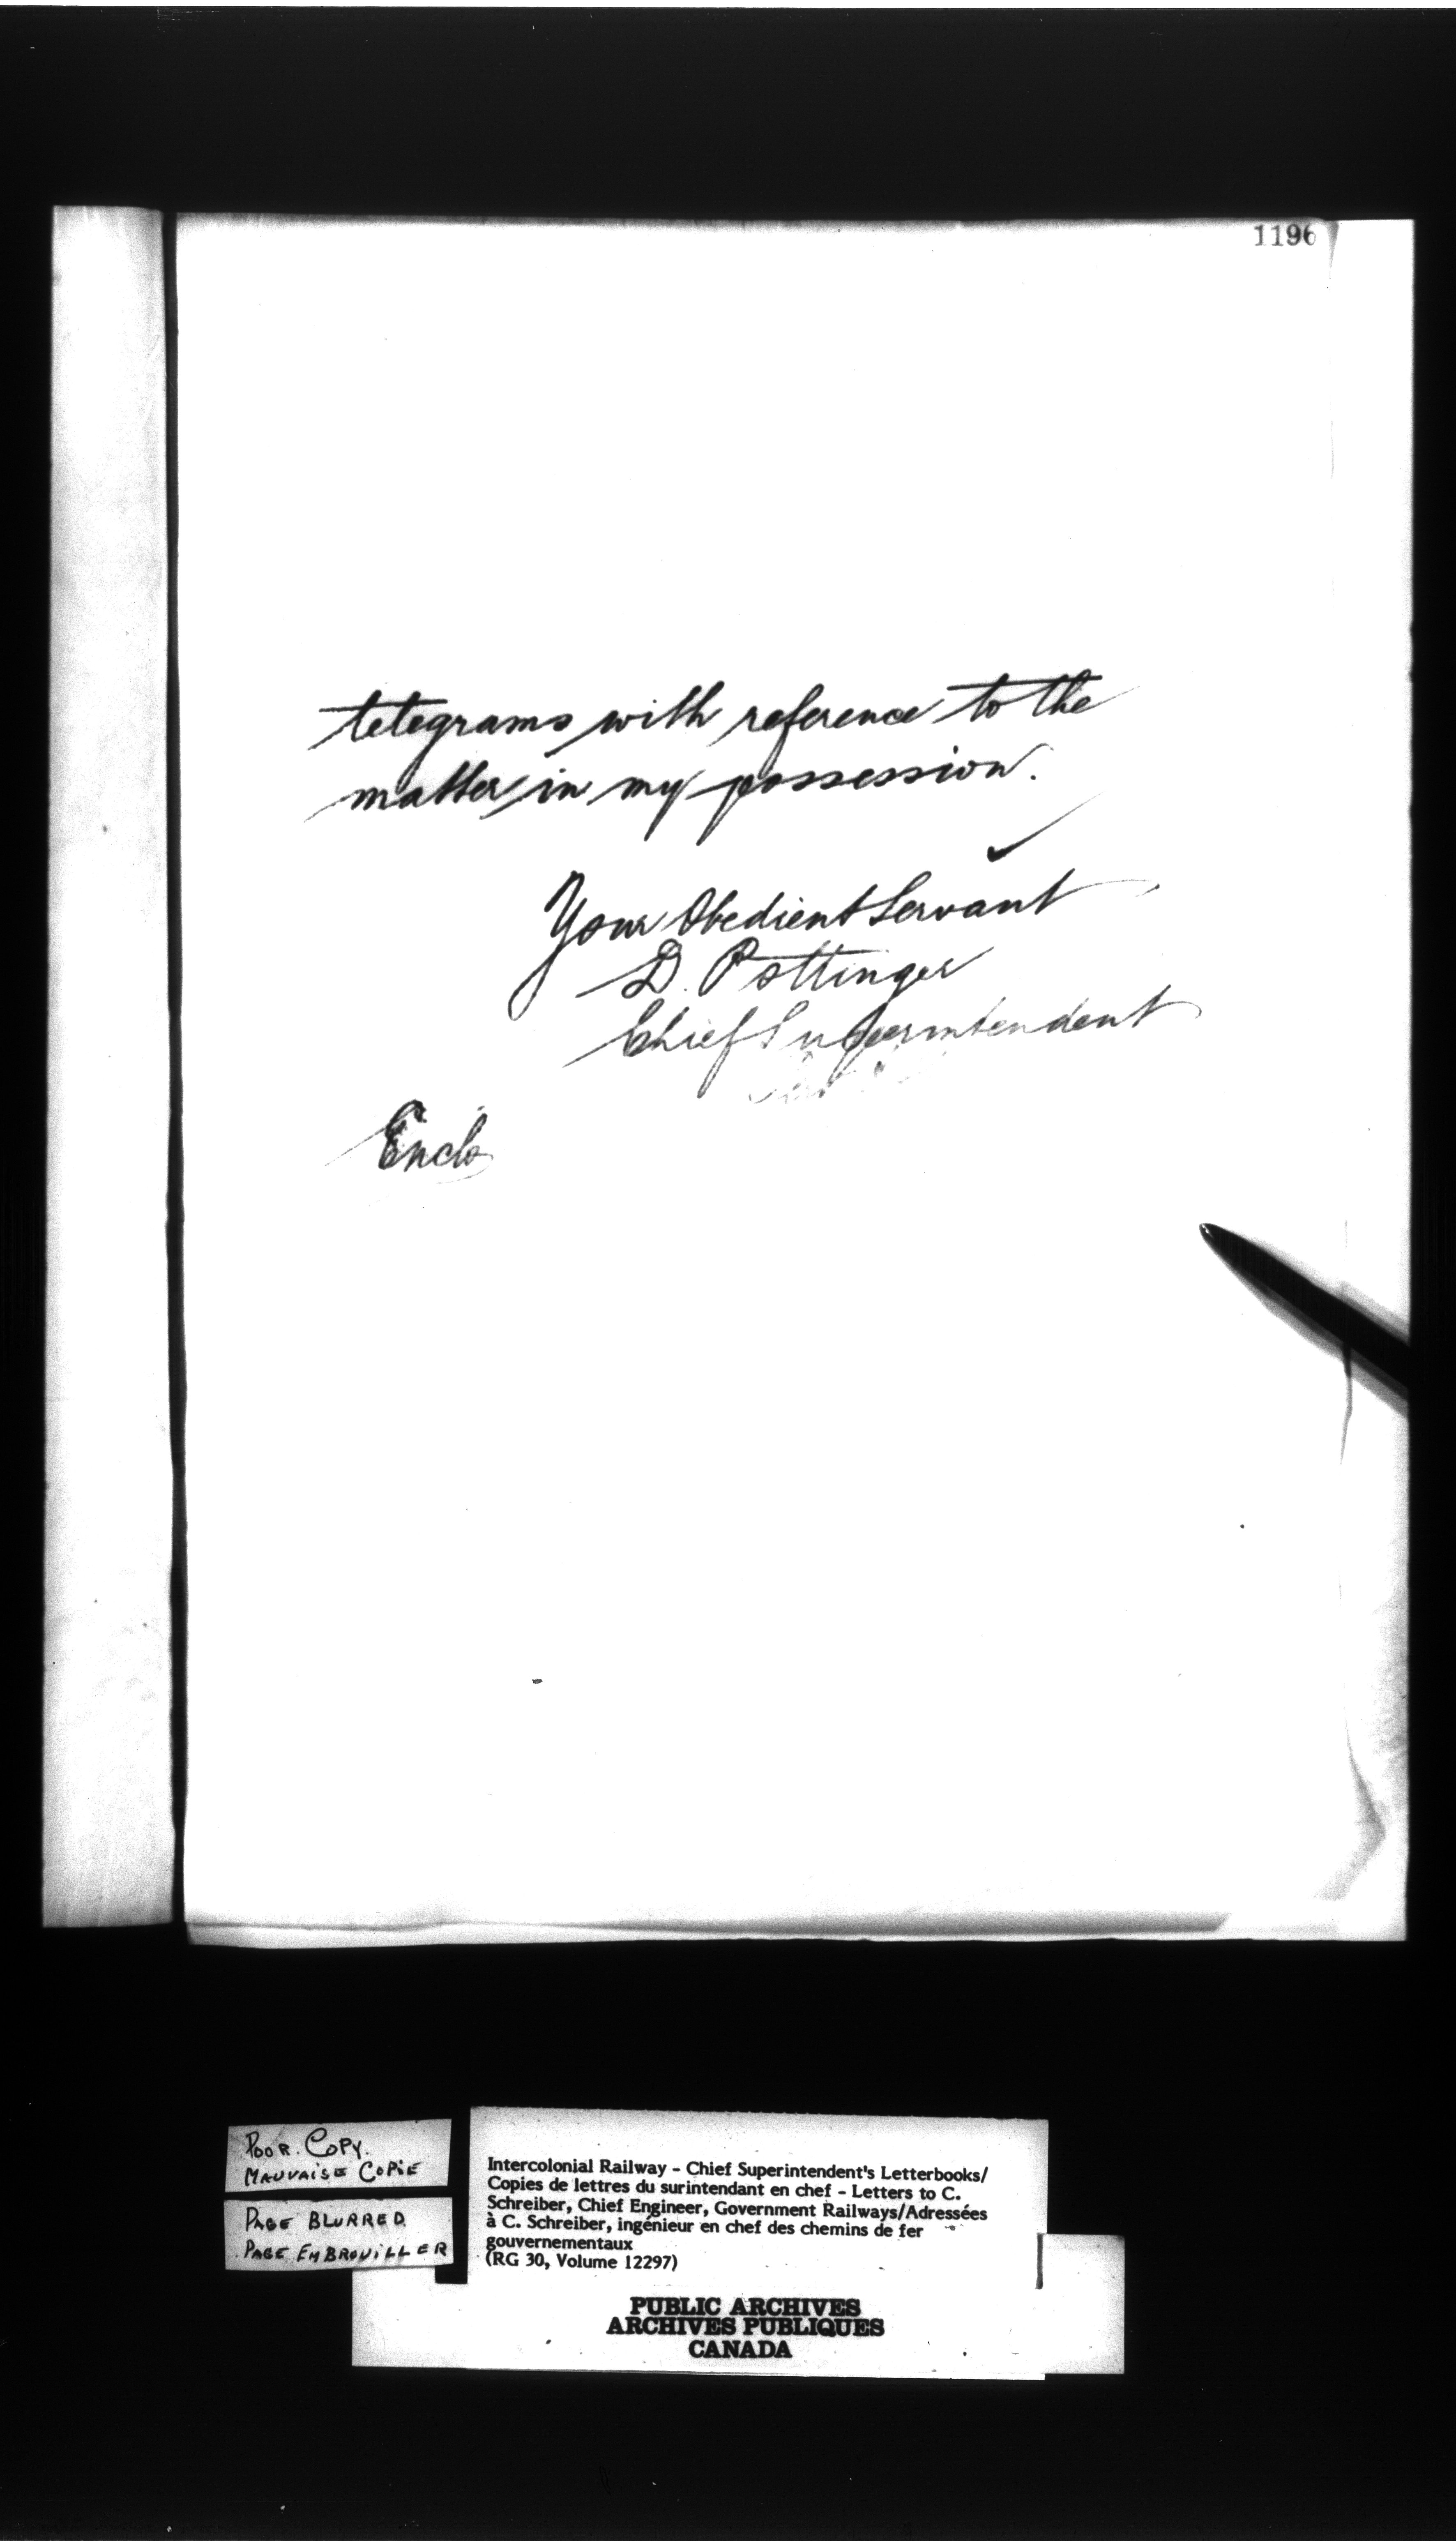 1196
telegrams with reference to the
matter in my possession.
Your Obedient Servant
D. Pottinger
Chief Superintendent
Enclo
POOR COPY.
MAUVAISE COPIE
PAGE BLURRED
PAGE EMBROUILLER
Intercolonial Railway - Chief Superintendent's Letterbooks/
Copies de lettres du surintendant en chef - Letters to C.
Schreiber, Chief Engineer, Government Railways/Adressées
à C. Schreiber, ingénieur en chef des chemins de fer
gouvernementaux
(RG 30, Volume 12297)
PUBLIC ARCHIVES
ARCHIVES PUBLIQUES
CANADA